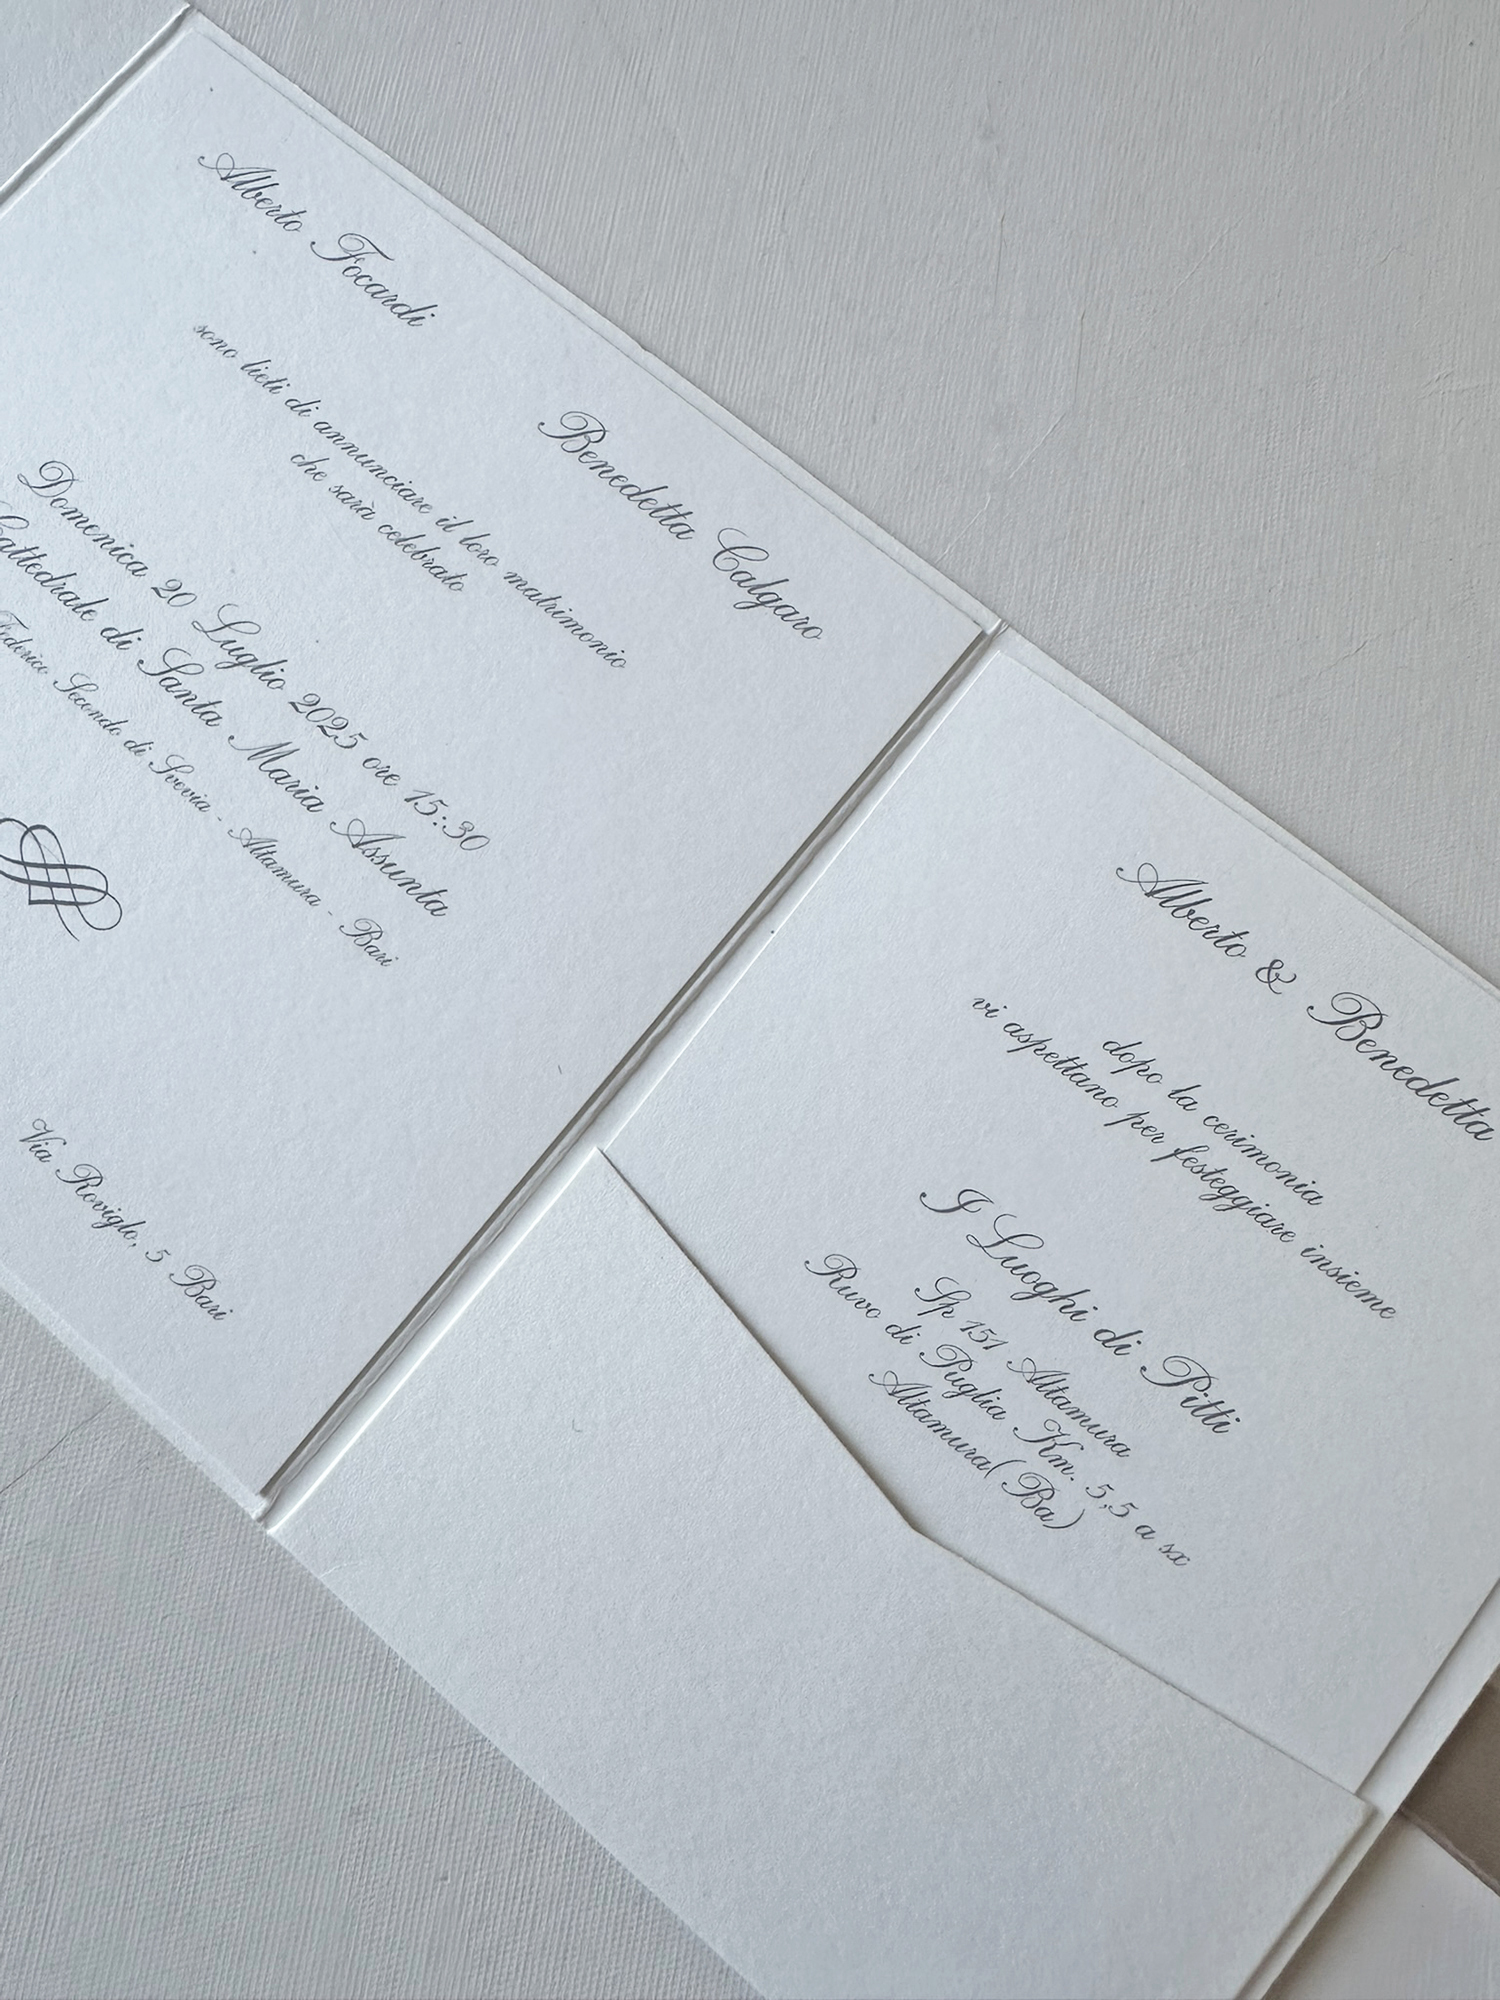 Alberto Focardi
Benedetta Calgaro
sono lieti di annunciare il loro matrimonio
che sarà celebrato
Domenica 20 Luglio 2025 ore 15:30
Cattedrale di Santa Maria Assunta
Federico Secondo di Svevia - Altamura - Bari
Via Roviglo, 5 Bari
Alberto & Benedetta
dopo la cerimonia
vi aspettano per festeggiare insieme
I Luoghi di Pitti
Sp 151 Altamura
Ruvo di Puglia Km. 5,5 a sx
Altamura(Ba)